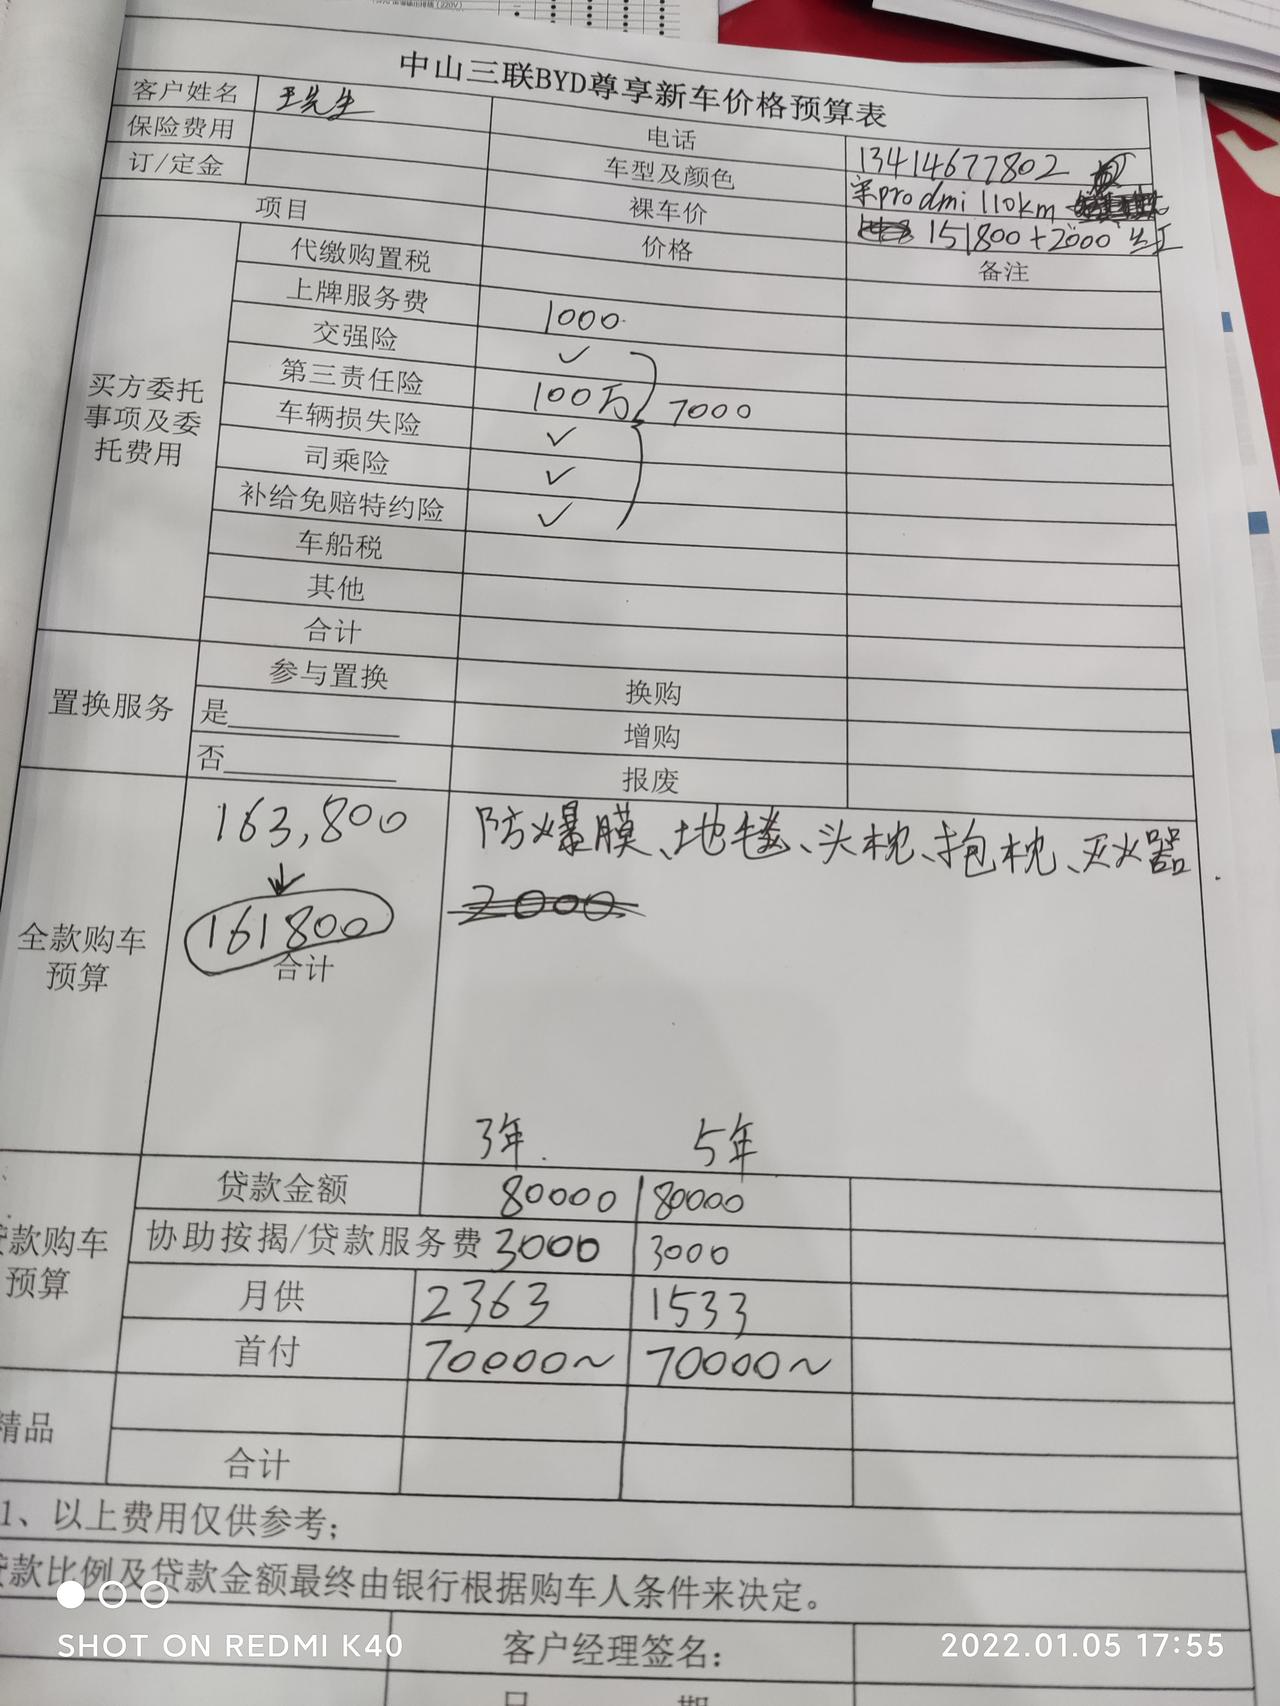 中山三联BYD尊享新车价格预算表
客户姓名 王先生 电话 13414677802
保险费用 车型及颜色 宋prodmi 110km
订/定金 裸车价 151800+2000
项目 价格 备注
买方委托事项及委托费用
代缴购置税
上牌服务费 1000
交强险 ✓
第三责任险 100万 7000
车辆损失险 ✓
司乘险 ✓
补给免赔特约险 ✓
车船税
其他
合计
置换服务
参与置换 换购
是 增购
否 报废
全款购车预算
163,800 防爆膜、地毯、头枕、抱枕、灭火器.
161800 2000
合计
3年. 5年
款购车预算
贷款金额 80000 80000
协助按揭/贷款服务费 3000 3000
月供 2363 1533
首付 70000~ 70000~
精品
合计
1、以上费用仅供参考；
款比例及贷款金额最终由银行根据购车人条件来决定。
客户经理签名：
日 期
SHOT ON REDMI K40
2022.01.05 17:55